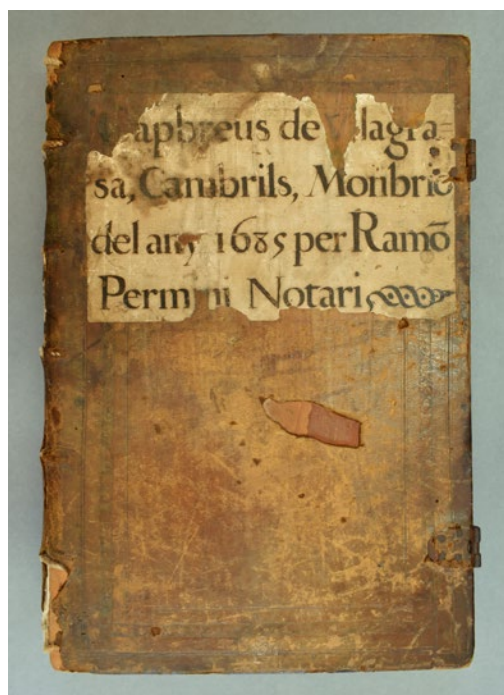 apbreus de lagra
sa, Cambrils, Monbrio
del any 1685 per Ramō
Notari